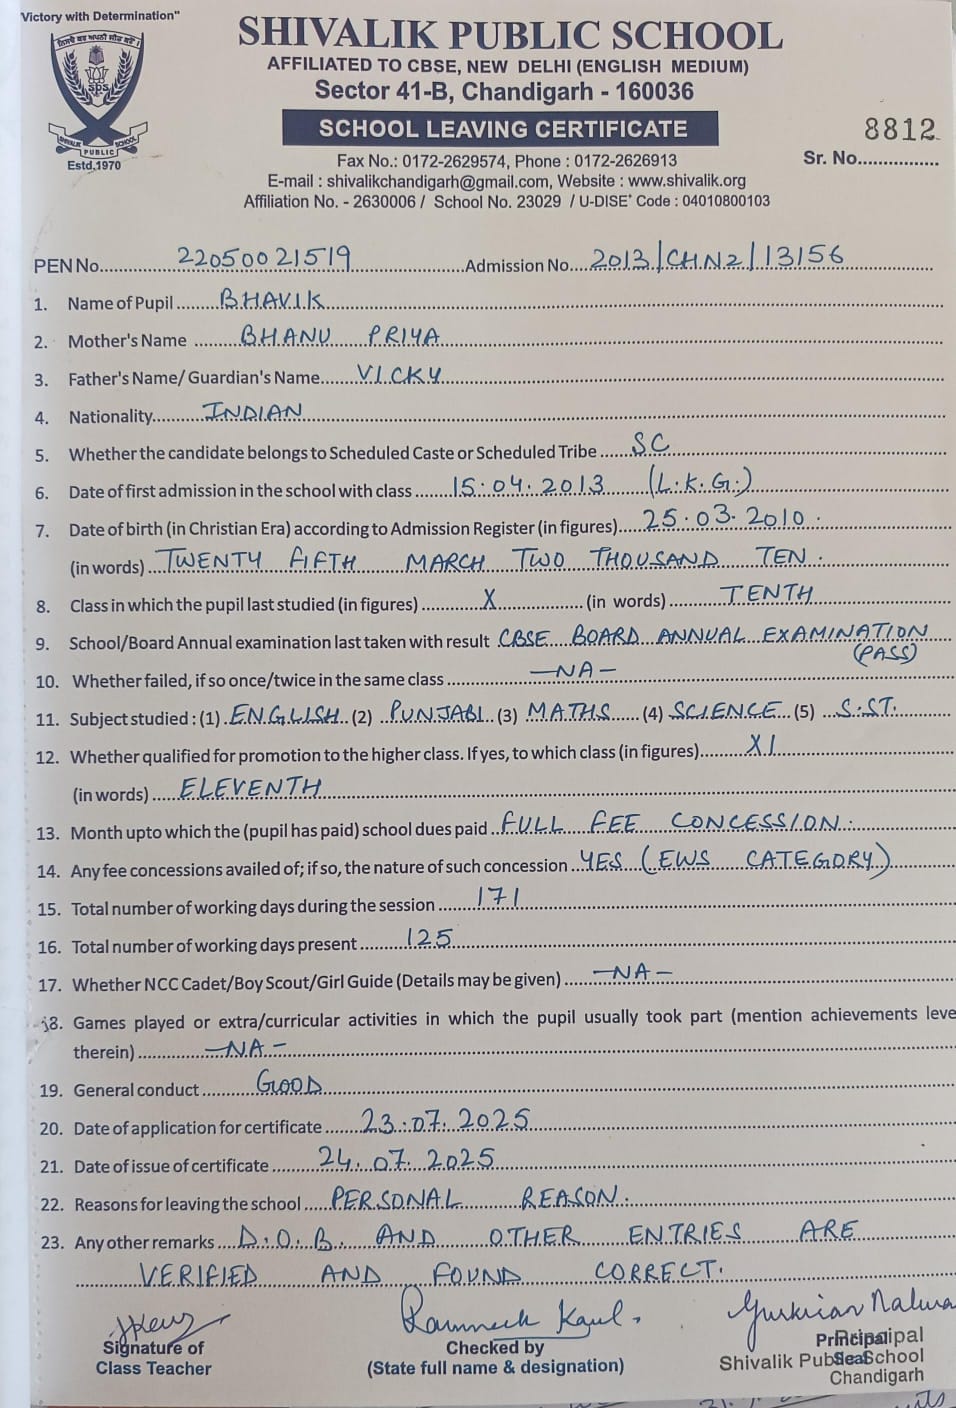 Victory with Determination"
SHIVALIK PUBLIC SCHOOL
AFFILIATED TO CBSE, NEW DELHI (ENGLISH MEDIUM)
Sector 41-B, Chandigarh - 160036
SCHOOL LEAVING CERTIFICATE
sps
SHIVALIK PUBLIC SCHOOL
Estd.1970
8812
Sr. No...............
Fax No.: 0172-2629574, Phone : 0172-2626913
E-mail : shivalikchandigarh@gmail.com, Website : www.shivalik.org
Affiliation No. - 2630006 / School No. 23029 / U-DISE+ Code : 04010800103
PEN No. 22050021519 Admission No. 2013/CHN2/13156
1. Name of Pupil BHAVIK
2. Mother's Name BHANU PRIYA
3. Father's Name/ Guardian's Name VICKY
4. Nationality INDIAN
5. Whether the candidate belongs to Scheduled Caste or Scheduled Tribe SC
6. Date of first admission in the school with class 15.04.2013 (L.K.G.)
7. Date of birth (in Christian Era) according to Admission Register (in figures) 25.03.2010.
(in words) TWENTY FIFTH MARCH TWO THOUSAND TEN.
8. Class in which the pupil last studied (in figures) X (in words) TENTH
9. School/Board Annual examination last taken with result CBSE BOARD ANNUAL EXAMINATION
(PASS)
10. Whether failed, if so once/twice in the same class -NA-
11. Subject studied : (1) ENGLISH (2) PUNJABI (3) MATHS (4) SCIENCE (5) S.ST.
12. Whether qualified for promotion to the higher class. If yes, to which class (in figures) XI
(in words) ELEVENTH
13. Month upto which the (pupil has paid) school dues paid FULL FEE CONCESSION.
14. Any fee concessions availed of; if so, the nature of such concession YES (EWS CATEGORY)
15. Total number of working days during the session 171
16. Total number of working days present 125
17. Whether NCC Cadet/Boy Scout/Girl Guide (Details may be given) -NA-
18. Games played or extra/curricular activities in which the pupil usually took part (mention achievements leve
therein) -NA-
19. General conduct GOOD
20. Date of application for certificate 23.07.2025
21. Date of issue of certificate 24.07.2025
22. Reasons for leaving the school PERSONAL REASON.
23. Any other remarks D.O.B. AND OTHER ENTRIES ARE
VERIFIED AND FOUND CORRECT.
Ramneek Kaul.
Signature of
Class Teacher
Checked by
(State full name & designation)
Principal
Seal
Principal
Shivalik Public School
Chandigarh